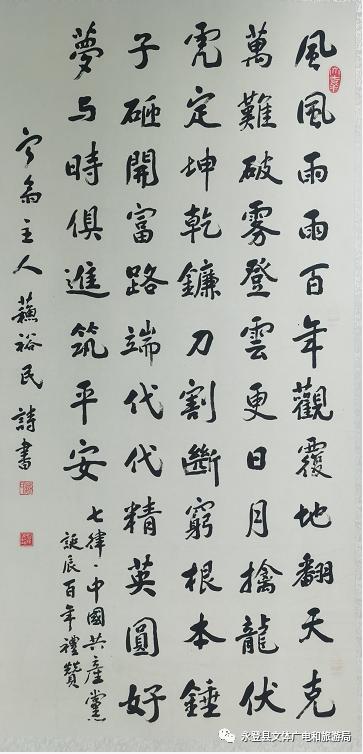 風風雨雨百年觀覆地翻天克
萬難破雾登雲更日月擒龍伏
虎定坤乾鐮刀割斷窮根本錘
子砸開富路端代代精英圓好
夢与時俱進筑平安
七律·中國共產黨
誕辰百年禮贊
主人蘓裕民詩書
永登县文体广电和旅游局